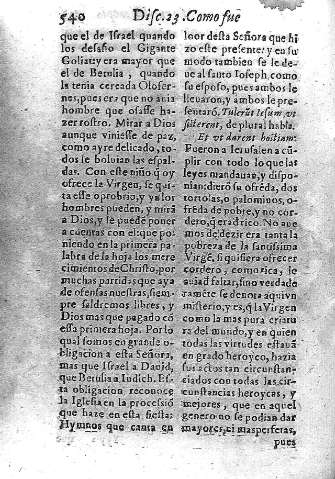 540 Disc.23. Como fue
que el de Israel quando
los desafio el Gigante
Goliat: y era mayor que
el de Betulia, quando
la tenia cercada Olofer-
nes, pues
hombre que osasse ha-
zer rostro. Mirar a Dios
aunque viniesse de paz,
como ayre delicado, to-
dos se boluian las espal-
das. Con este niño q̃ oy
ofrece la Virgen, se qui-
ta este oprobrio, y ya los
hombres pueden, y mirã
a Dios, y se puede poner
a cuentas con el: que po-
niendo en la primera pa-
labra de la hoja los mere
cimientos de Christo, por
muchas partidas que aya
de ofensas nuestras, siem-
pre saldremos libres, y
Dios mas que pagado cõ
essa primera hoja. Por lo
qual somos en grande o-
bligacion a esta Señora,
mas que Israel a Dauid,
que Betulia a Iudich. Es-
ta obligacion reconoce
la Iglesia en la processiõ
que haze en esta fiesta:
Hymnos que canta en
loor desta Señora que hi
zo este presente: y en su
modo tambien se le de-
ue al santo Ioseph, como
su esposo, pues ambos le
lleuaron, y ambos le pre-
sentarõ. Tulerũt Iesum, vt
sisterent, de plural habla.
Et vt darent hostiam:
Fueron a Ierusalen a cũ-
plir con todo lo que las
leyes mandauã, y dispo-
nian: dierõ su ofrẽda, dos
tortolas, o palominos, o-
frẽda de pobre, y no cor-
dero, q̃ era d rico. No aue
mos de dezir era tanta la
pobreza de la santissima
Virgẽ, si quisiera ofrecer
cordero, como rica, le
auia d faltar, sino verdade
ramẽte se denota aqui vn
misterio, y es, q̃ la Virgen
como la mas pura criatu
ra del mundo, y en quien
todas las virtudes estauã
en grado heroyco, hazia
sus actos tan circunstan-
ciados con todas las cir-
cunstancias heroycas, y
mejores, que en aquel
genero no se podian dar
mayores, ni mas perfetas,
pues